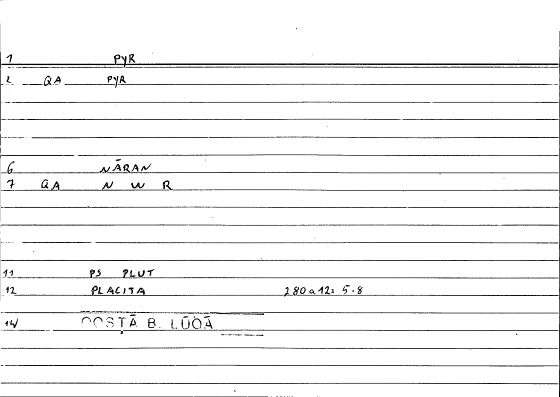 1 PYR
2 QA PYR
6 NĀRAN
7 QA N W R
11 PS PLUT
12 PLACITA 280a12; 5.8
14 COSTĀ B. LŪQĀ